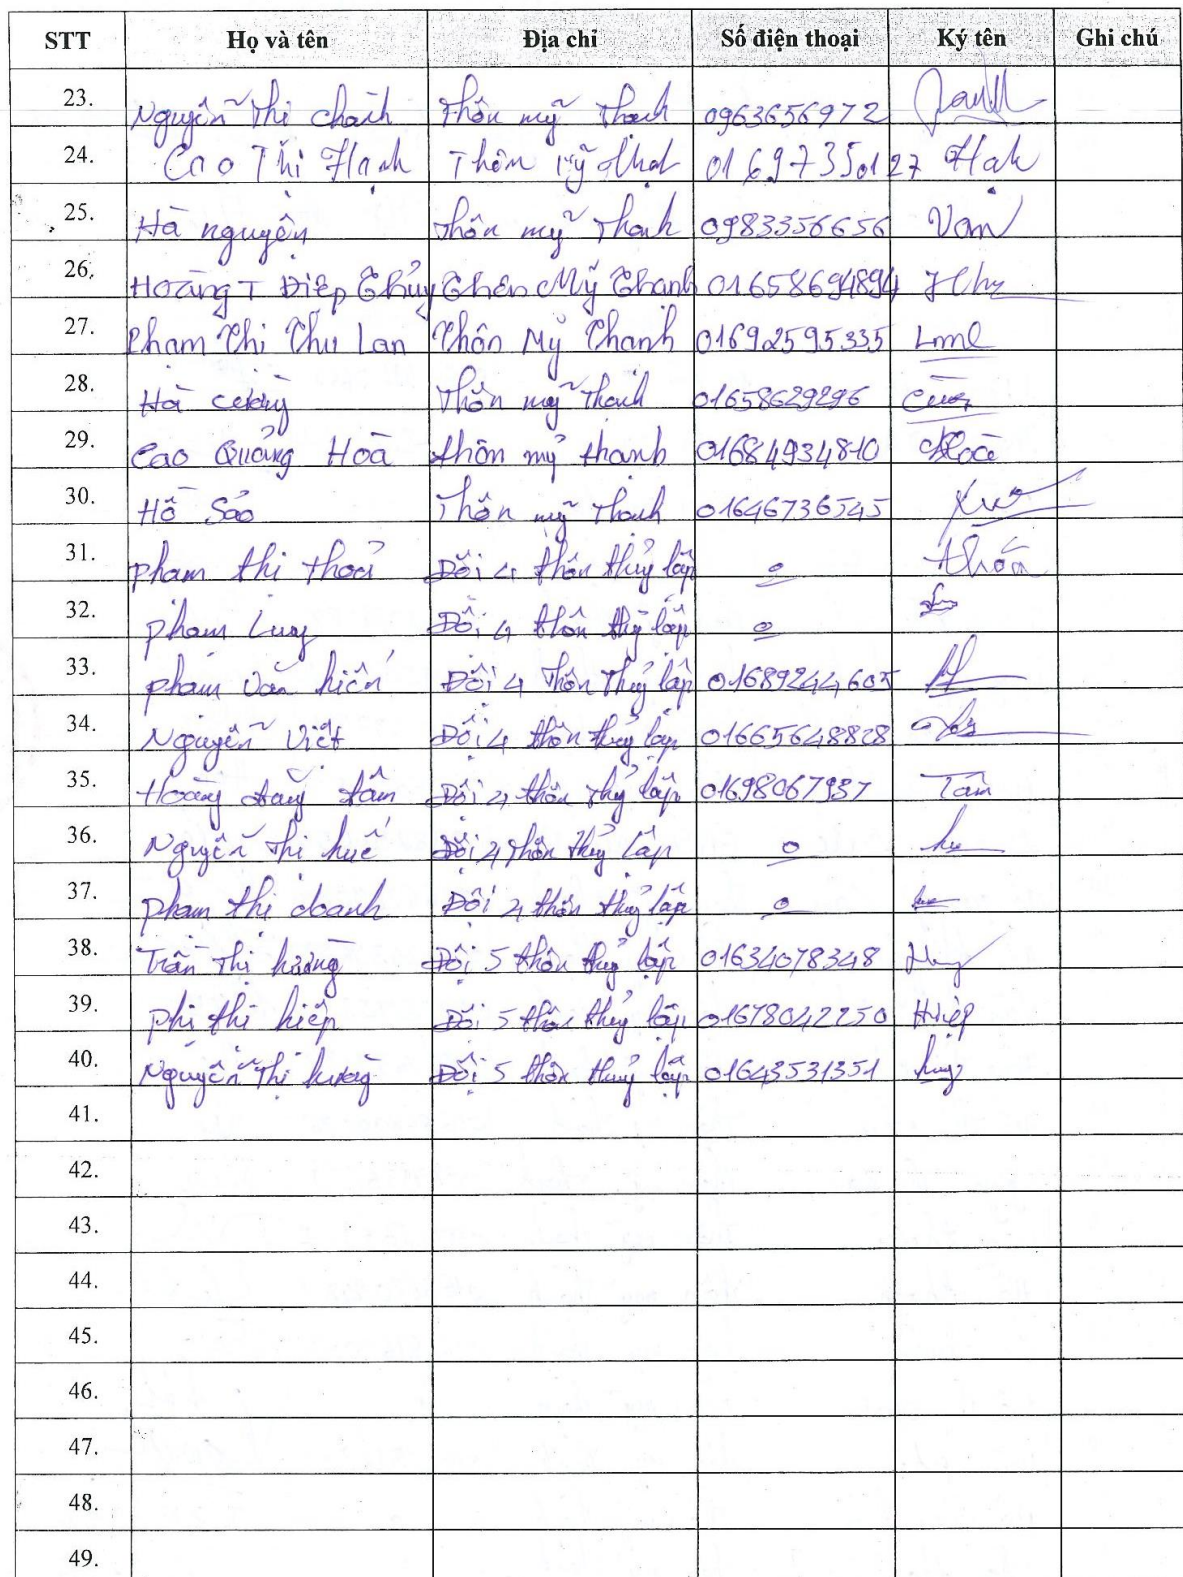 STT Họ và tên Địa chỉ Số điện thoại Ký tên Ghi chú
23. Nguyễn Thị chành Thôn mỹ Thanh 0963656972
24. Cao Thị Hạnh Thôn Mỹ Thạnh 01697350127 Hạh
25. Hà nguyên Thôn mỹ Thanh 0983356656 Vạn
26. Hoàng T Điệp Thủy Thôn Mỹ Thanh 01658694894
27. Phạm Thị Thu Lan Thôn Mỹ Thanh 01692595335
28. Hà cường Thôn mỹ Thanh 01658629296
29. Cao Quảng Hoà thôn mỹ thanh 01684934810 Hoà
30. Hồ Sáo Thôn mỹ Thanh 01646736545
31. phạm thị thoả Đội 4 thôn thủy lập 0 thoả
32. phạm Luỹ Đội 4 thôn thủy lập 0
33. phạm văn hiến Đội 4 Thôn Thủy lập 01689244605
34. Nguyễn Viết Đội 4 thôn thủy lập 01665648828
35. Hoàng đăng tâm Đội 4 thôn thủy lập 01698067937 Tâm
36. Nguyễn Thị huế Đội 4 thôn thủy Lập 0 hu
37. phạm thị doanh Đội 4 thôn thủy lập 0
38. Trần Thị hường Đội 5 thôn thủy lập 01634078348
39. phi thị hiệp Đội 5 thôn thủy lập 01678042250 Hiệp
40. Nguyễn Thị hường Đội 5 thôn thuỷ lập 01643531351
41.
42.
43.
44.
45.
46.
47.
48.
49.